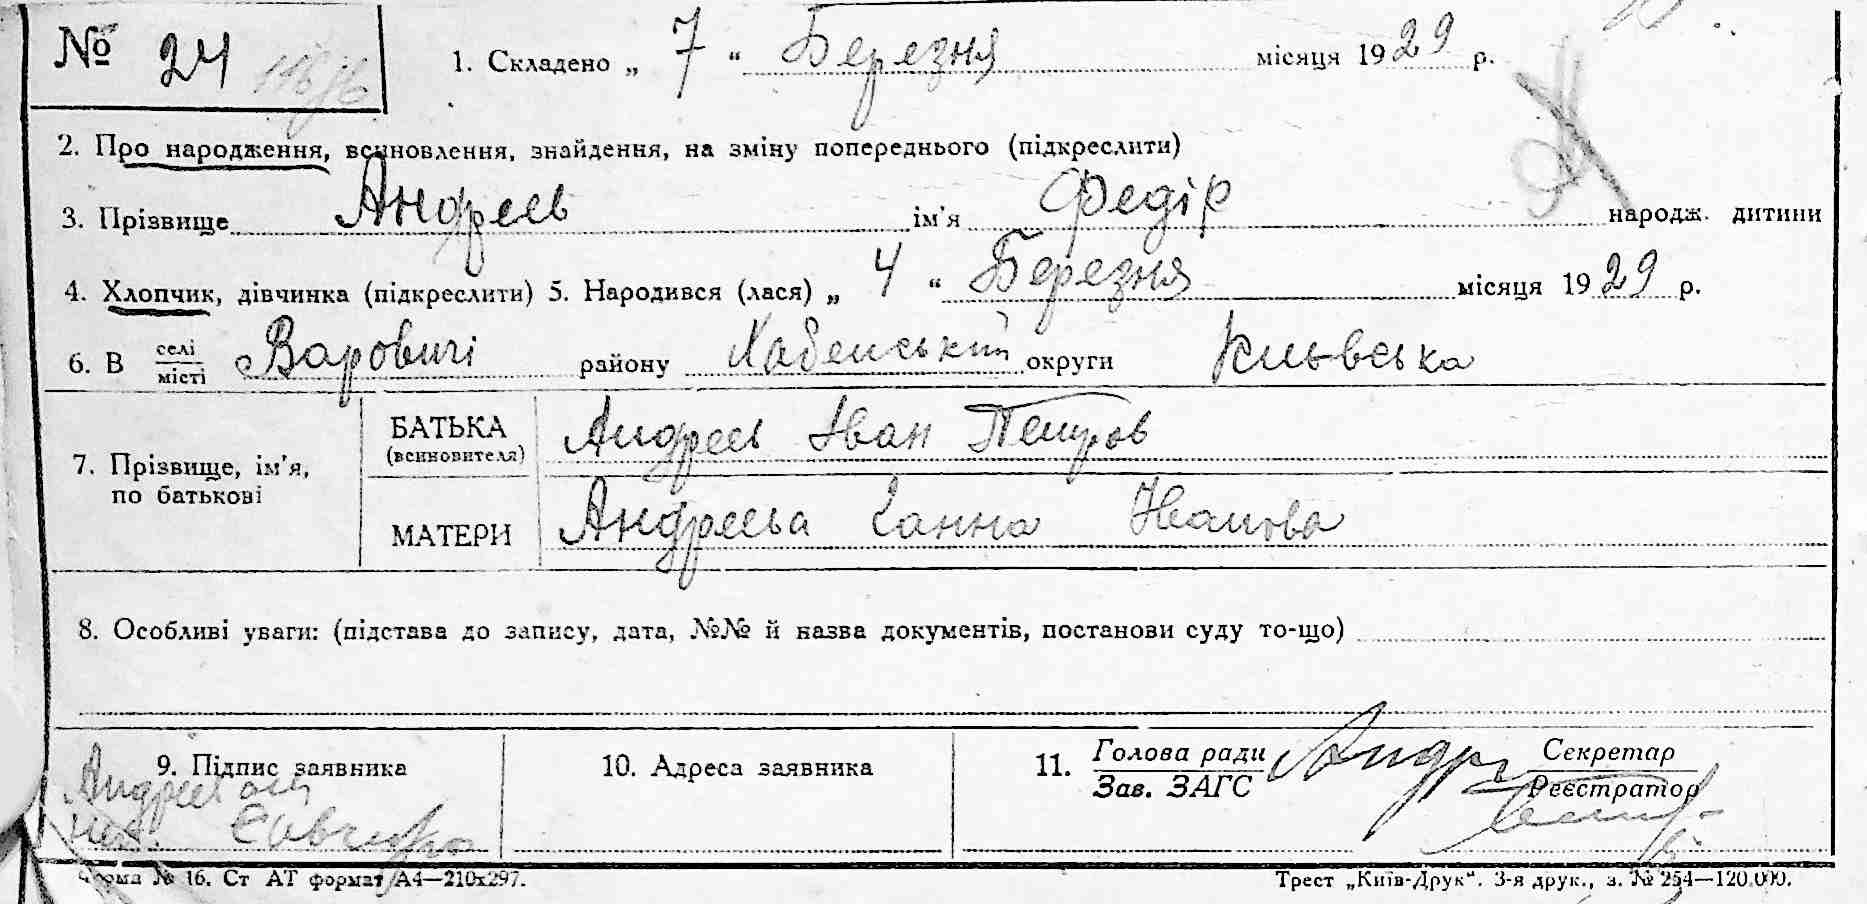 № 24
1. Складено „ 7 “ Березня місяця 1929 р.
2. Про народження, всиновлення, знайдення, на зміну попереднього (підкреслити)
3. Прізвище Андреєв ім'я Федір народж. дитини
4. Хлопчик, дівчинка (підкреслити) 5. Народився (лася) „ 4 “ Березня місяця 1929 р.
6. В селі/місті Варовичі району Хабенський округи Київська
7. Прізвище, ім'я, по батькові
БАТЬКА (всиновителя) Андреєв Іван Петров
МАТЕРИ Андреєва Ганна Иванова
8. Особливі уваги: (підстава до запису, дата, №№ й назва документів, постанови суду то-що)
9. Підпис заявника
10. Адреса заявника
11. Голова ради Секретар
Зав. ЗАГС Реєстратор
Форма № 16. Ст АТ формат А4—210x297.
Трест „Київ-Друк“. 3-я друк., з. № 254—120.000.